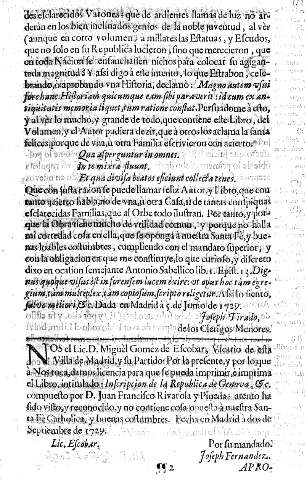 des esclarecidos Varones; que de ardientes llamas de luz no ar-
derán en los bien inclinados genios de la noble juventud, al ver
(aunque en corto volumen) à millares las Estatuas, y Escudos,
que no solo en su Republica lucieron, sino que merecieron, que
en toda Nacion se ensanchassen nichos para colocar su agigan-
tada magnitud? Y assi digo à este intento, lo que Estrabon, cele-
brando, y aprobando una Historia, declamò: Magno autem
Historiam quicumque eam sibi paraverit: id cum ex an-
tiquitatis memoria liquet, tum ratione constat. Persuadome à esto,
y al ver lo mucho, y grande de todo, que contiene este Libro, del
Volumen, y del Autor pudiera dezir, que à otros los aclama la fama
felices porque de una, ù otra Familia escrivieron con acierto:
Qua asperguntur in omnes.
In te mixta fluunt,
Et qua divisa beatos efficiunt collecta tenes.
Que con justa razon se puede llamar feliz Autor, y Libro, que con
tanto acierto hablò no de una, ù otra Casa, si de tantas como quantas
esclarecidas Familias, que al Orbe todo ilustran. Por tanto, y por-
que la Obra tiene mucho de verdad y porque no falla
mi cortedad cosa en ella, que se oponga à nuestra Santa Fè, y bue-
nas loables costumbres, cumpliendo con el mandato superior, y
con la obligacion en que me constituye, lo que curioso, y diferente
dixo en ocasion semejante Antonio Sabellico lib. 1. Epist. 13. Dig-
nus quoque visus est in forensem lucem exire: et opus hoc tam egre-
gium, tam multiplex, tam copiosum, scripto religetur. Assi lo siento,
salvo meliori &c. Dada en Madrid à 5. de Junio de 1729.
Joseph Tirado,
de los Clerigos Menores.
NOS el Lic. D. Miguel Gomez de Escobar, Vicario de esta
Villa de Madrid, y su Partido: Por la presente, y por lo que
à Nos toca, damos licencia para que se pueda imprimir, è imprima
el Libro, intitulado: Inscripcion de la Republica de Genova, &c.
compuesto por D. Juan Francisco Rivarola y Pineda: atento ha
sido visto, y reconocido, y no contiene cosa opuesta à nuestra San-
ta Fè Catholica, y buenas costumbres. Fecha en Madrid à dos de
Septiembre de 1729.
Lic. Escobar. Por su mandado.
Joseph Fernandez.
¶¶ 2 APRO-